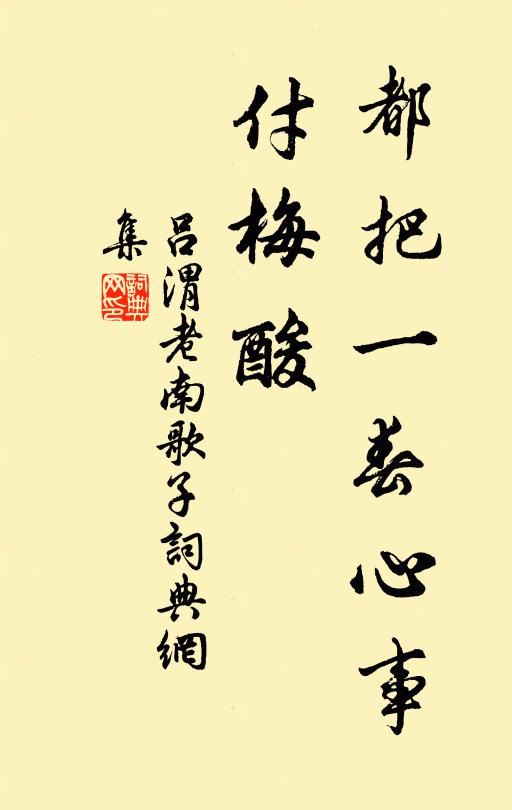 都把一春心事
付梅酸
吕渭老南歌子詞典網
集
詞典网印